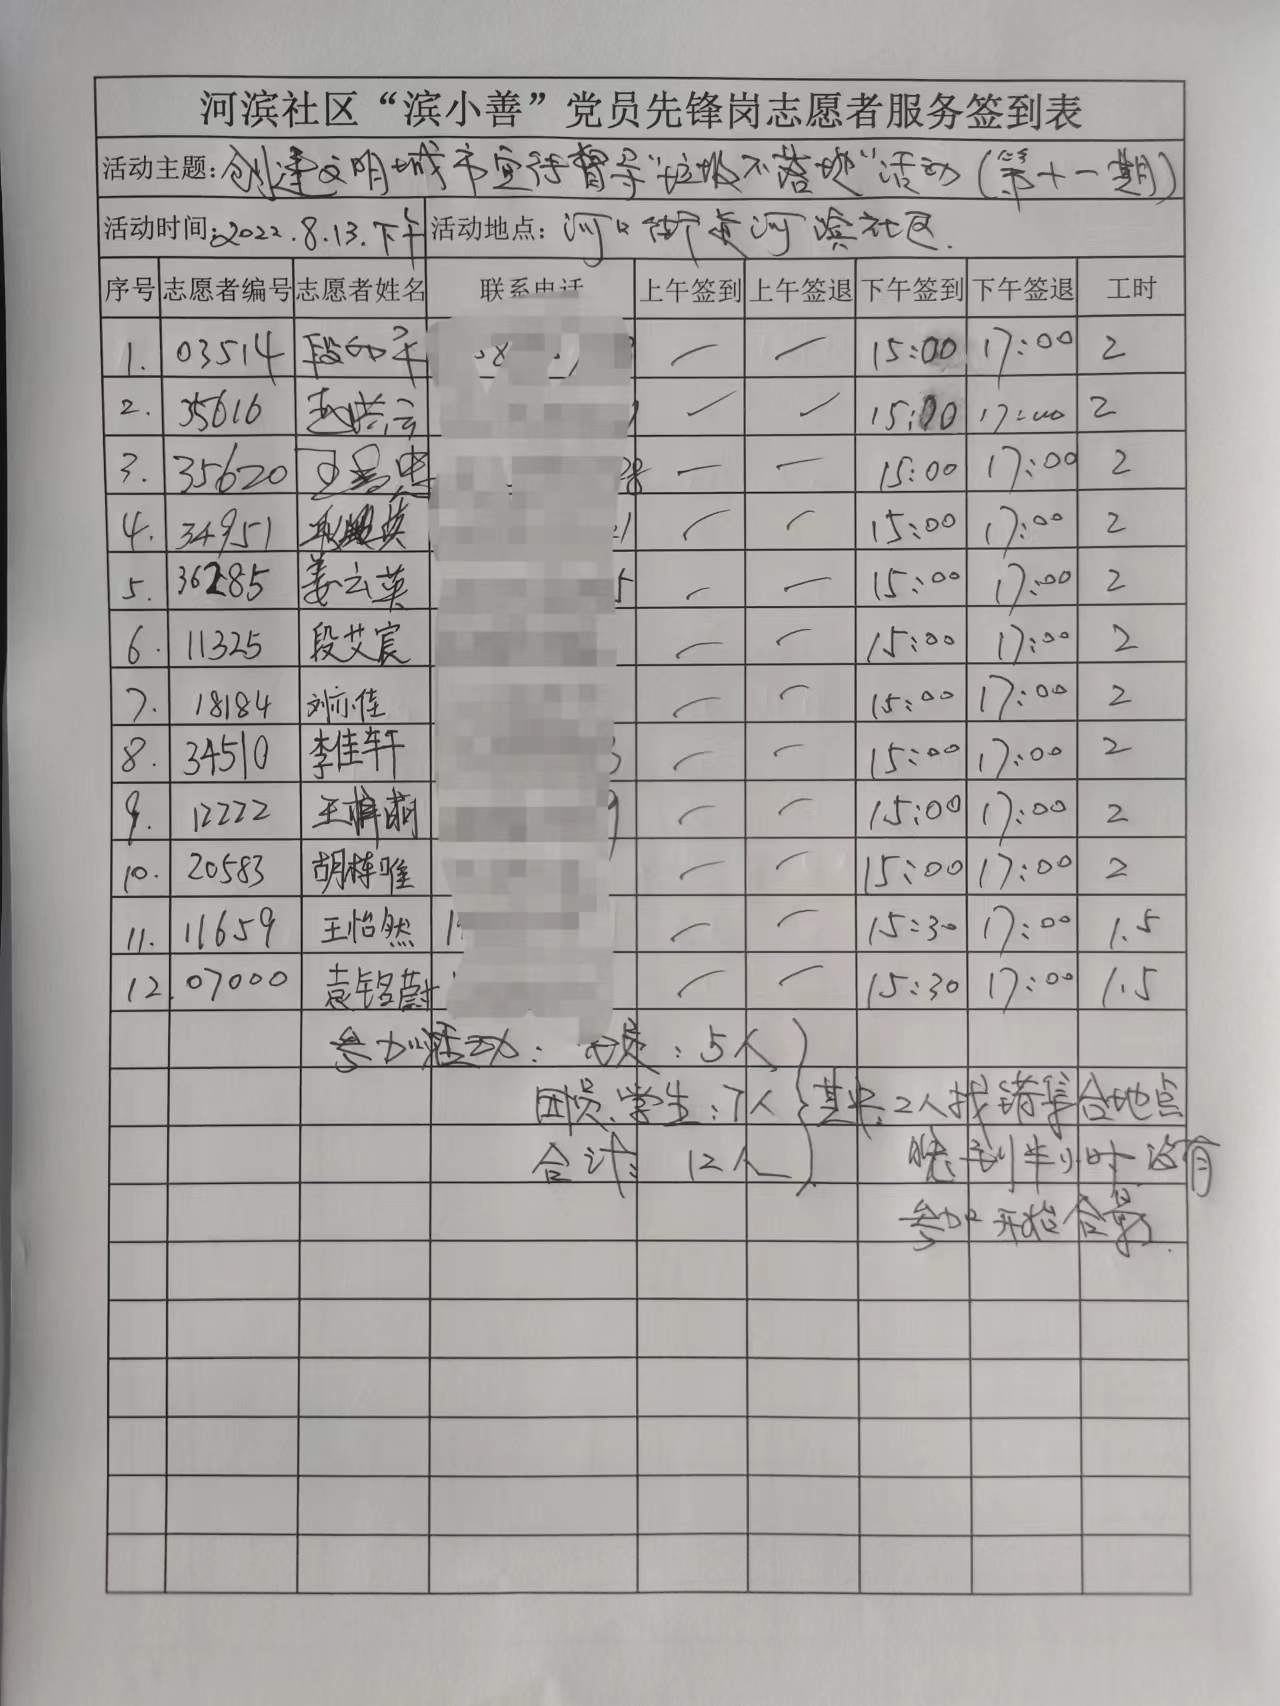 河滨社区“滨小善”党员先锋岗志愿者服务签到表
活动主题：创建文明城市宣传督导“垃圾不落地”活动（第十一期）
活动时间：2022.8.13.下午 活动地点：河口街道河滨社区.
序号 志愿者编号 志愿者姓名 联系电话 上午签到 上午签退 下午签到 下午签退 工时
1. 03514 段 — — 15:00 17:00 2
2. 35616 — — 15:00 17:00 2
3. 35620 王 28 — — 15:00 17:00 2
4. 34951 英 1 — — 15:00 17:00 2
5. 36285 姜云英 5 — — 15:00 17:00 2
6. 11325 段艾宸 — — 15:00 17:00 2
7. 18184 刘亦佳 — — 15:00 17:00 2
8. 34510 李佳轩 3 — — 15:00 17:00 2
9. 12222 王梓萌 9 — — 15:00 17:00 2
10. 20583 胡栋唯 — — 15:00 17:00 2
11. 11659 王怡然 1 — — 15:30 17:00 1.5
12. 07000 袁铭蔚 — — 15:30 17:00 1.5
参加活动：党员：5人
团员、学生：7人 其中2人找错集合地点
合计：12人 晚到半小时.没有
参加开始合影.